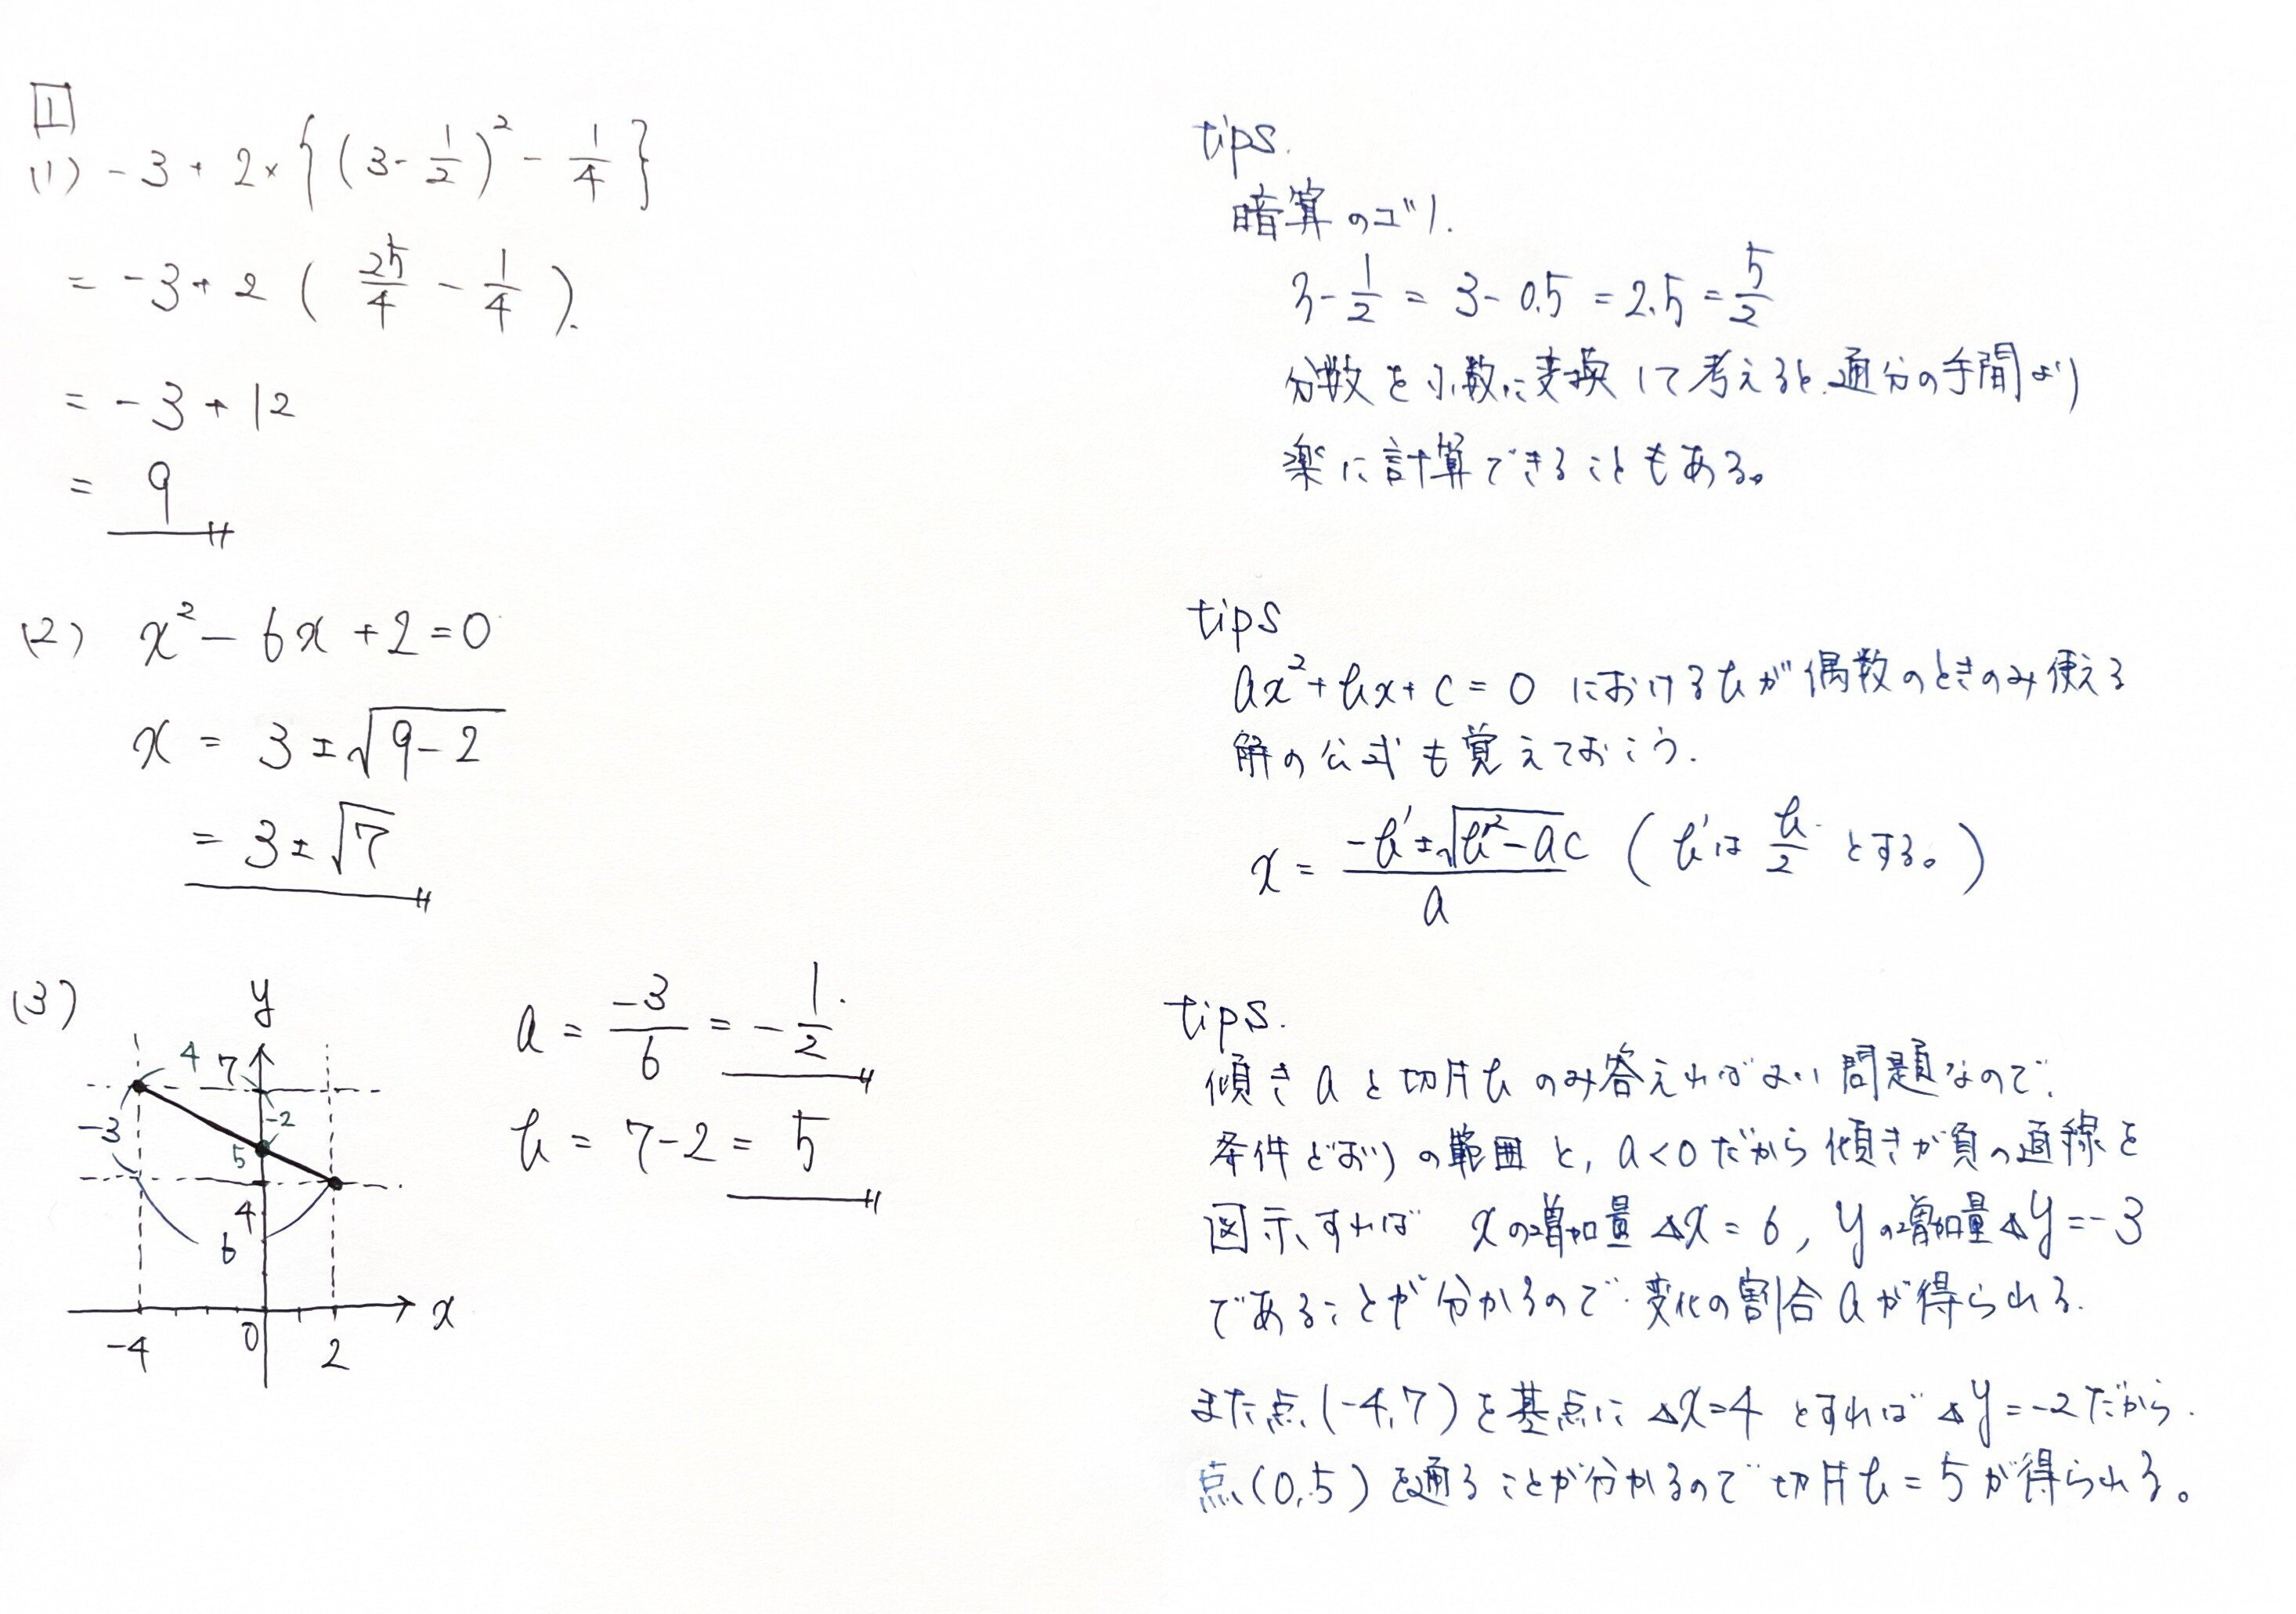 1
(1) -3 + 2×{(3-1/2)² - 1/4}
= -3 + 2 ( 25/4 - 1/4 ).
= -3 + 12
= 9
tips.
暗算のコツ.
3-1/2 = 3-0.5 = 2.5 = 5/2
分数を小数に変換して考えると、通分の手間より
楽に計算できることもある。
(2) x² - 6x + 2 = 0
x = 3 ± √(9-2)
= 3 ± √7
tips
ax² + bx + c = 0 におけるbが偶数のときのみ使える
解の公式も覚えておこう.
x = (-b' ± √(b'² - ac))/a ( b'は b/2 とする。)
(3)
y
4 7
-3 -2
5
4
6
-4 0 2 x
a = -3/6 = -1/2
b = 7-2 = 5
tips.
傾きaと切片bのみ答えればよい問題なので、
条件どおりの範囲と, a<0だから傾きが負の直線を
図示すれば xの増加量Δx=6, yの増加量Δy=-3
であることが分かるので変化の割合aが得られる.
また点(-4,7)を基点にΔx=4とすればΔy=-2だから.
点(0,5)を通ることが分かるので切片b=5が得られる。